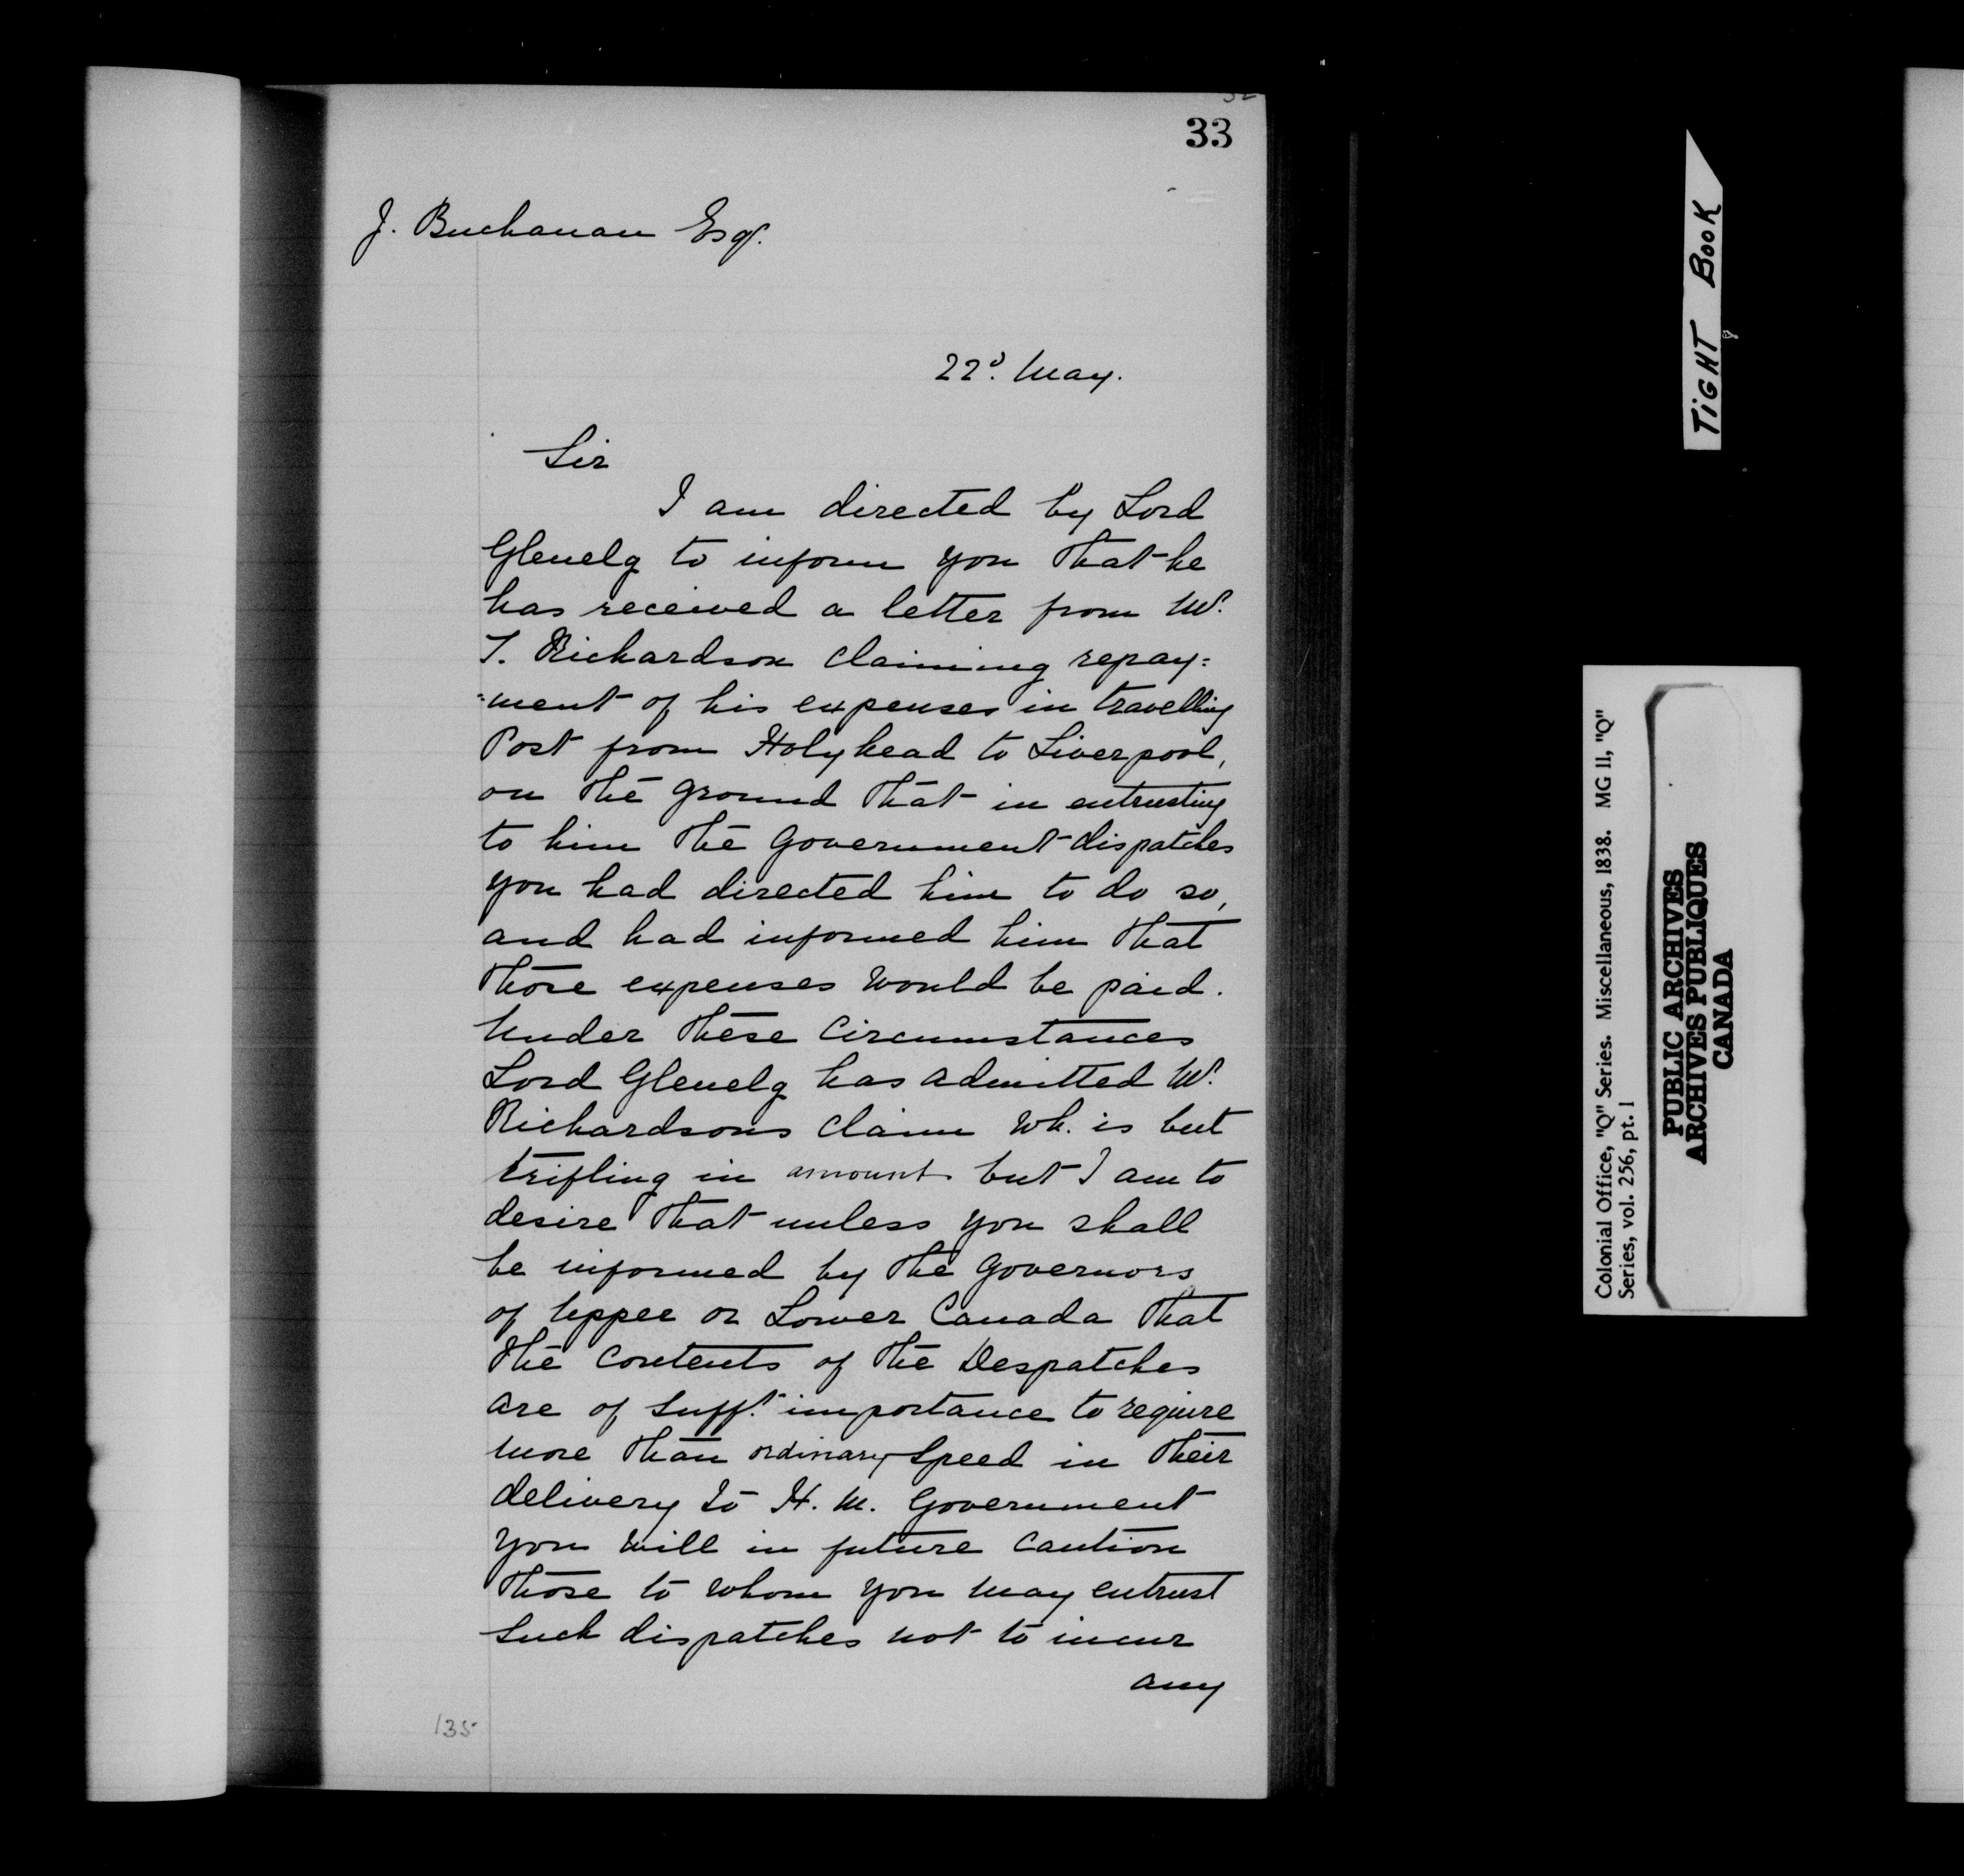 33
J. Buchanan Esqr.
22d. May.
Sir
I am directed by Lord
Glenelg to inform you that he
has received a letter from Mr.
T. Richardson claiming repay=
=ment of his expenses in travelling
Post from Holyhead to Liverpool,
on the ground that in entrusting
to him the Government dispatches
you had directed him to do so,
and had informed him that
those expenses would be paid.
Under these Circumstances
Lord Glenelg has admitted Mr.
Richardsons claim wh. is but
trifling in amount but I am to
desire that unless you shall
be informed by the Governors
of Upper or Lower Canada that
the Contents of the Despatches
are of Sufft. importance to require
more than ordinary Speed in their
delivery to H. M. Government
you will in future Caution
those to whom you may entrust
such dispatches not to incur
any
135
TIGHT BOOK
Colonial Office, "Q" Series. Miscellaneous, 1838. MG 11, "Q"
Series, vol. 256, pt. 1
PUBLIC ARCHIVES
ARCHIVES PUBLIQUES
CANADA